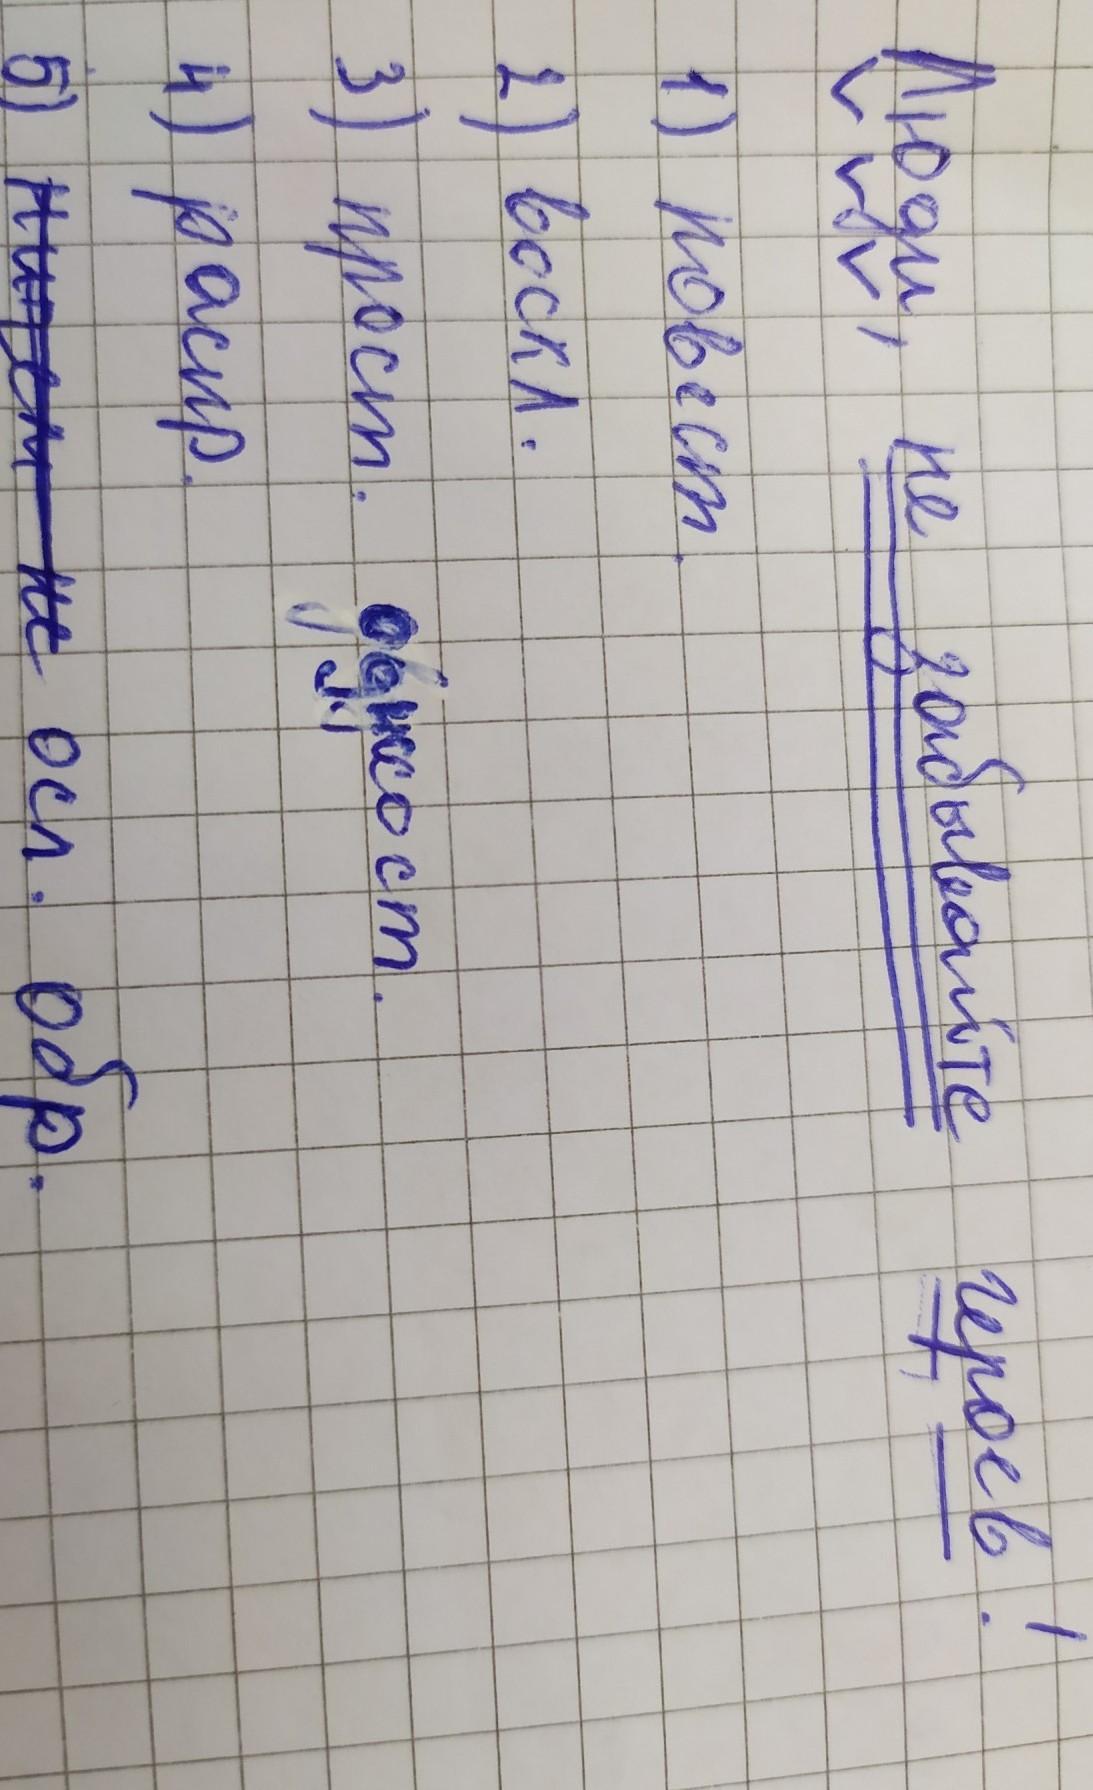 Люди, не забывайте героев!
1) повест.
2) воскл.
3) прост. односост.
4) распр.
5) осл. обр.